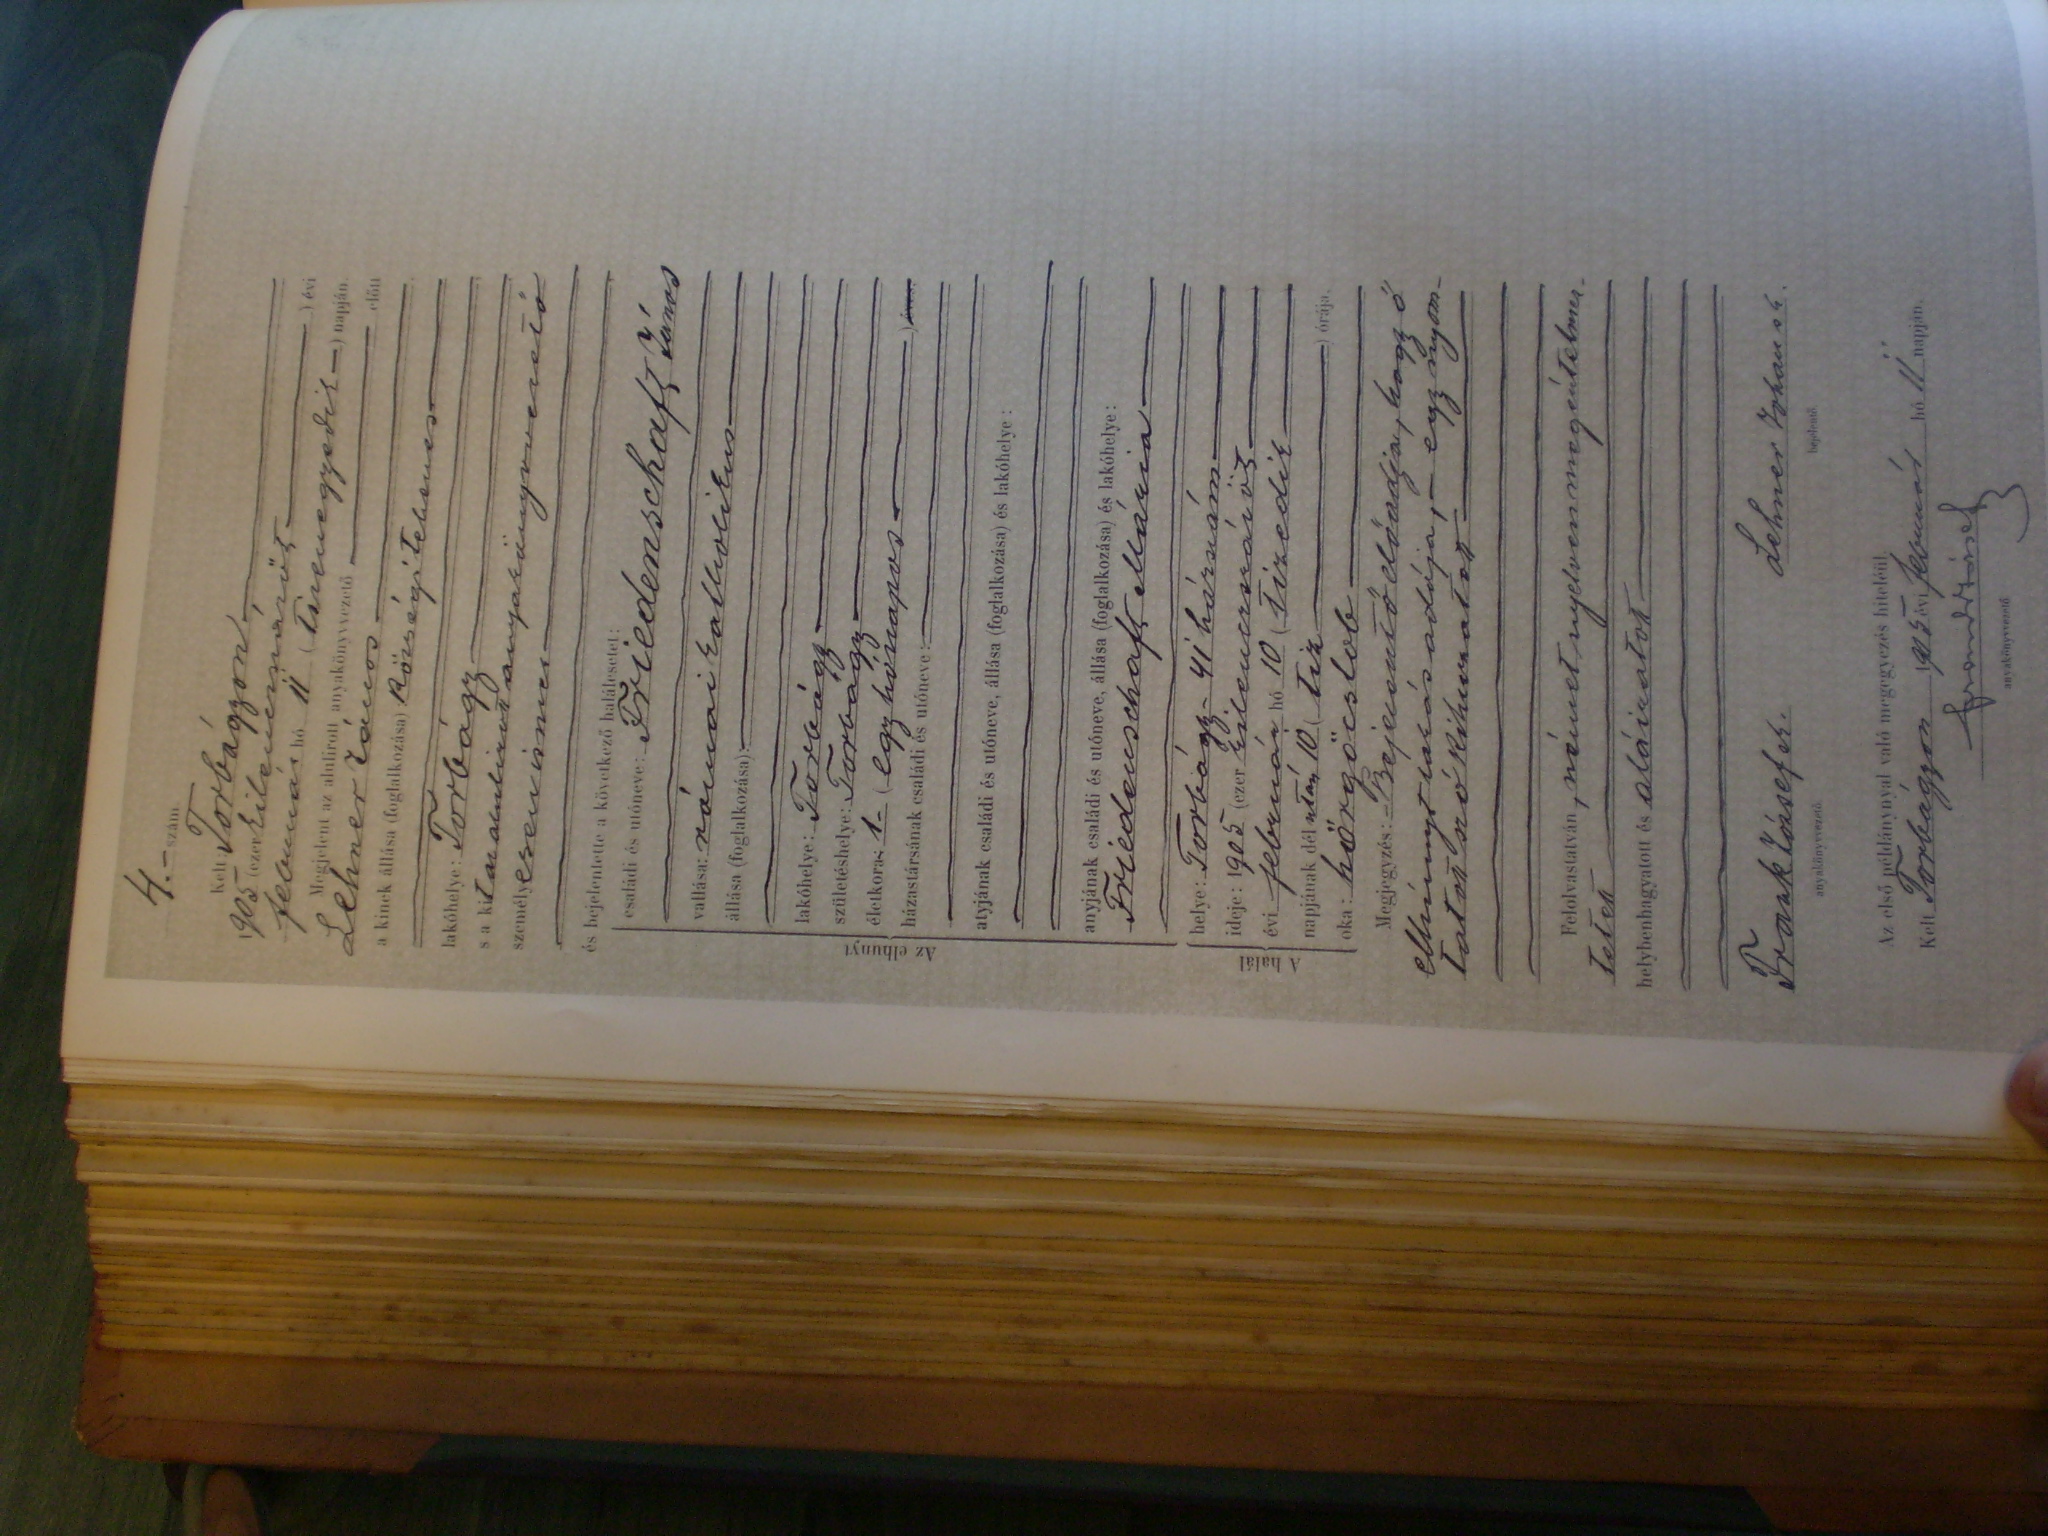 4.- szám
Kelt: Torbágyon
1905 (ezer kilencszázöt) évi
február hó 11 (Tizenegyedik) napján.
Megjelent az alulirott anyakönyvvezető előtt
Lehner János
a kinek állása (foglalkozása) községi telenes
lakóhelye: Torbágy
s a kit anyakönyvvezető
személyesen ismer
és bejelentette a következő halálesetet:
Az elhunyt
családi és utóneve: Friedenschaft János
vallása: római katholikus
állása (foglalkozása):
lakóhelye: Torbágy
születéshelye: Torbágy
életkora: 1- (egy hónapos) éves
házastársának családi és utóneve:
atyjának családi és utóneve, állása (foglalkozása) és lakóhelye:
anyjának családi és utóneve, állása (foglalkozása) és lakóhelye:
Friedenschaft Mária
A halál
helye: Torbágy 41 házszám
ideje: 1905 (ezer kilencszázöt)
évi február hó 10 (tizedik)
napjának dél után 10 (tíz) órája.
oka: hörgőcslob
Megjegyzés: Bejelentő előadja, hogy ő
elhúnyt lakásadója, - egy nyom-
tatott szó kihúzatott
Felolvastatván, német nyelven megértelmez-
tetett
helybenhagyatott és aláiratott
Frank József k. Lehner Johann k.
anyakönyvvezető. bejelentő.
Az első példánynyal való megegyezés hiteléül
Kelt Torbágyon 1905 évi február hó 11 napján.
Frank József
anyakönyvvezető